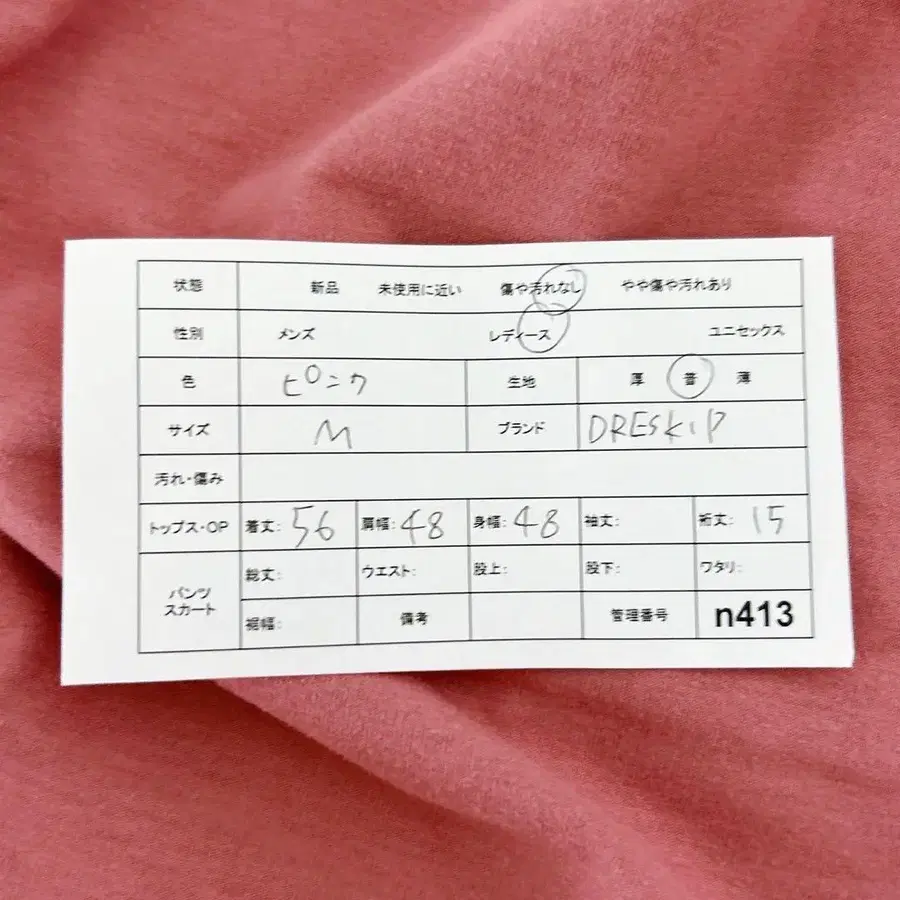 状態 新品 未使用に近い 傷や汚れなし やや傷や汚れあり
性別 メンズ レディース ユニセックス
色 ピンク 生地 厚 普 薄
サイズ M ブランド DRESKIP
汚れ・傷み
トップス・OP 着丈: 56 肩幅: 48 身幅: 48 袖丈: 裄丈: 15
パンツ スカート 総丈: ウエスト: 股上: 股下: ワタリ:
裾幅: 備考 管理番号 n413